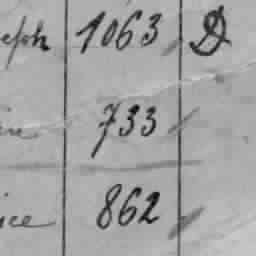 eph 1063 D
733
ice 862